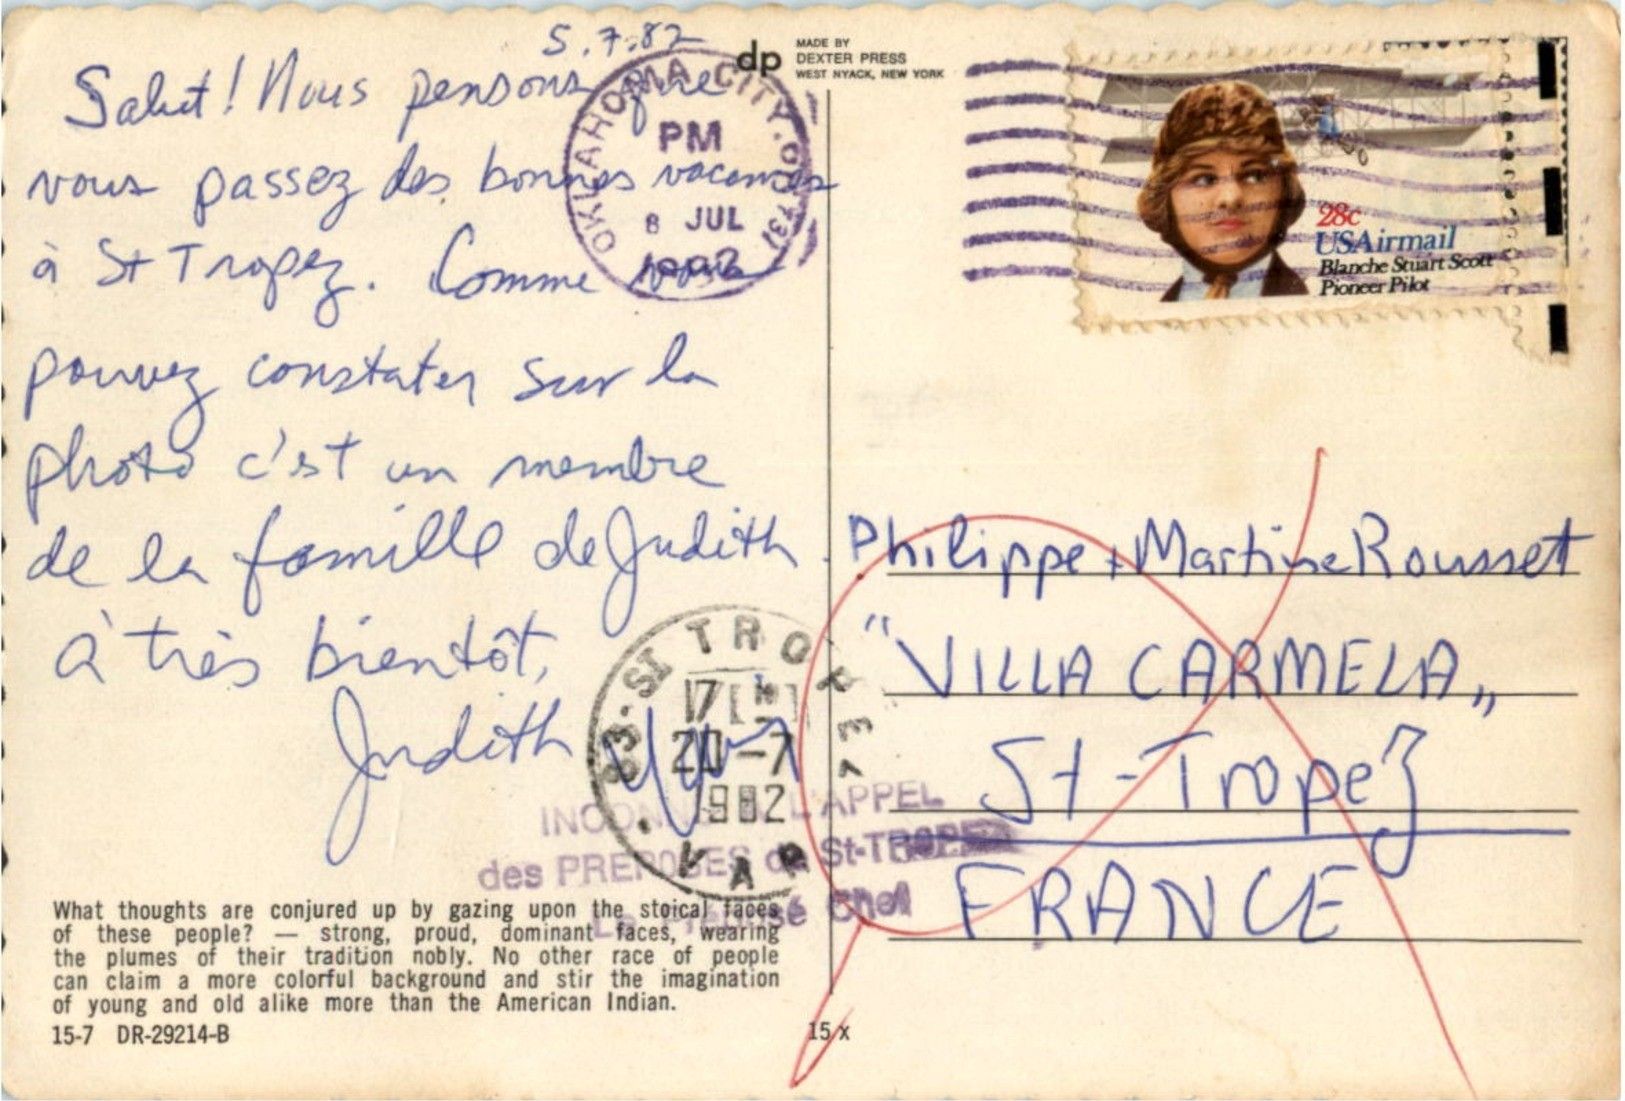 5.7.82
Salut! Nous pensons que
vous passez des bonnes vacances
à St Tropez. Comme vous
pouvez constater sur la
photo c'est un membre
de la famille de Judith.
à très bientôt,
Judith
dp
MADE BY
DEXTER PRESS
WEST NYACK, NEW YORK
OKLAHOMA CITY, OK 731
PM
8 JUL
1982
28c
USAirmail
Blanche Stuart Scott
Pioneer Pilot
Philippe + Martine Rousset
"VILLA CARMELA"
St-Tropez
FRANCE
83-ST TROPEZ
17 H
20-7
1982
VAR
INCONNU A L'APPEL
des PREPOSES de St-TROPEZ
Le Préposé Chef
What thoughts are conjured up by gazing upon the stoical faces
of these people? — strong, proud, dominant faces, wearing
the plumes of their tradition nobly. No other race of people
can claim a more colorful background and stir the imagination
of young and old alike more than the American Indian.
15-7 DR-29214-B
15 x